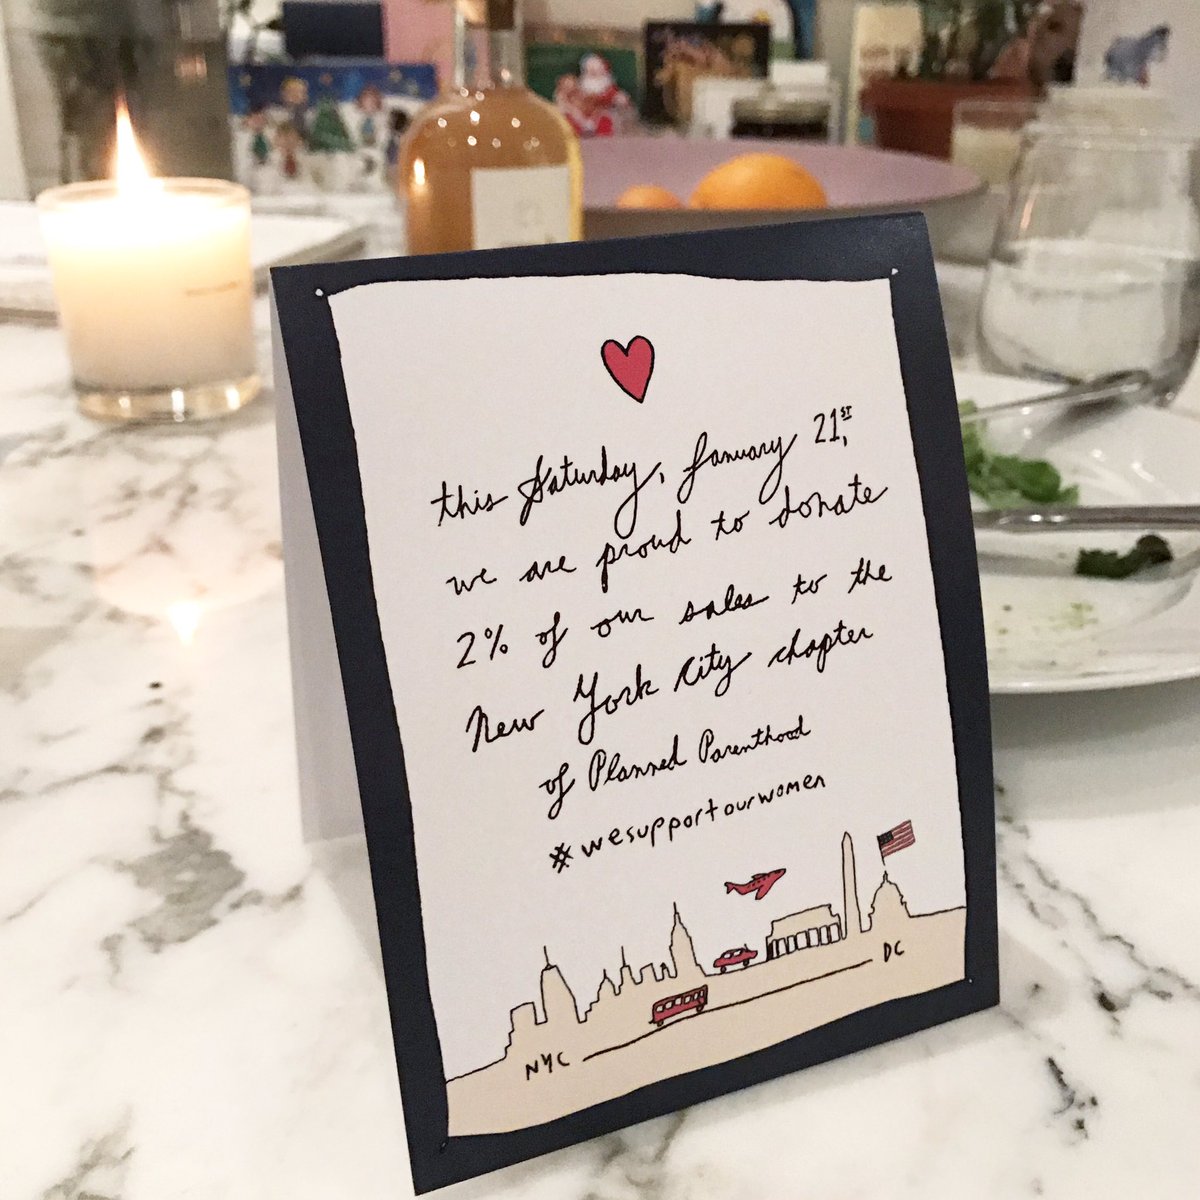 this Saturday, January 21st,
we are proud to donate
2% of our sales to the
New York City chapter
of Planned Parenthood
#wesupportourwomen
NYC DC